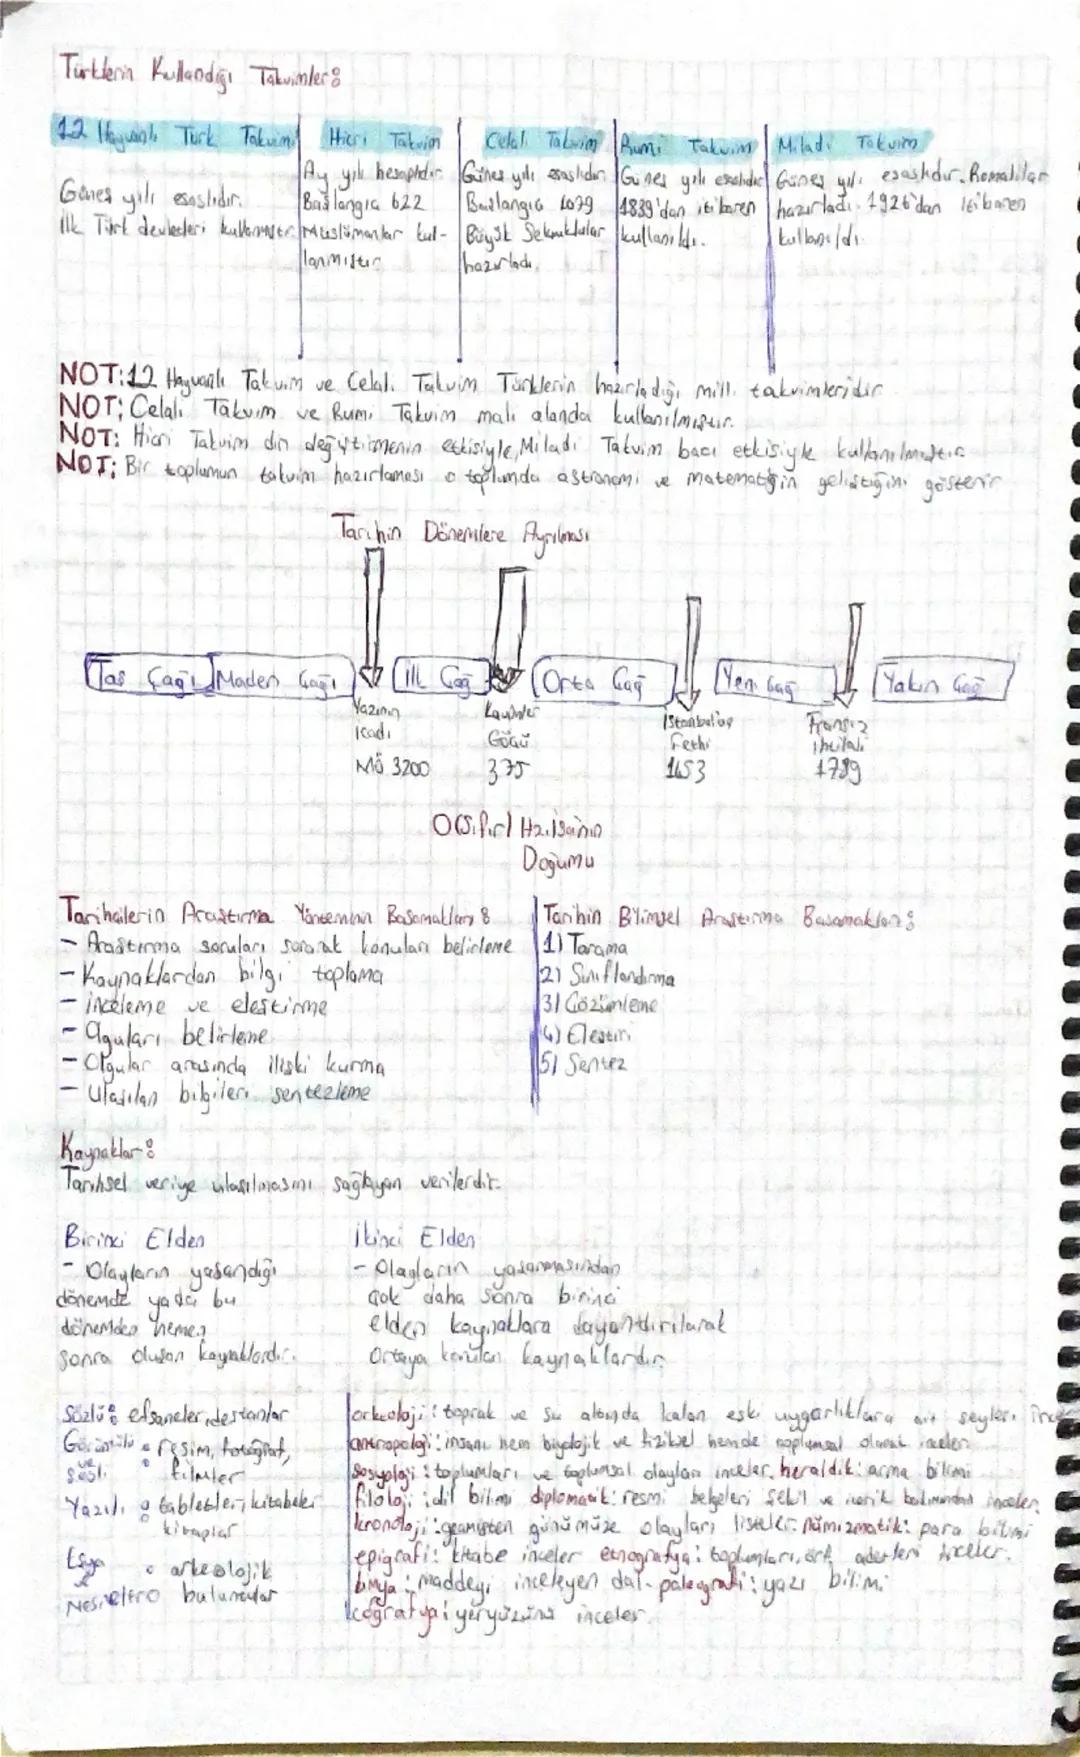 Türklerin Kullandığı Takvimler:
12 Hayvanlı Türk Takvimi
Güneş yılı esaslıdır.
İlk Türk devletleri kullanmıştır
Hicri Takvim
Ay yılı hesaplıdır
Başlangıcı 622
Müslümanlar kul-
lanmıştır
Celali Takvim
Güneş yılı esaslıdır
Başlangıcı 1079
Büyük Selçuklular
hazırladı.
Rumi Takvim
Güneş yılı esaslıdır
1839'dan itibaren
kullanıldı.
Miladi Takvim
Güneş yılı esaslıdır. Romalılar
hazırladı. 1926'dan itibaren
kullanıldı.
NOT: 12 Hayvanlı Takvim ve Celali Takvim Türklerin hazırladığı milli takvimleridir
NOT: Celali Takvim ve Rumi Takvim mali alanda kullanılmıştır.
NOT: Hicri Takvim din değiştirmenin etkisiyle, Miladi Takvim batı etkisiyle kullanılmıştır.
NOT: Bir toplumun takvim hazırlaması o toplumda astronomi ve matematiğin geliştiğini gösterir
Tarihin Dönemlere Ayrılması
Taş Çağı Maden Çağı İlk Çağ Orta Çağ Yeni Çağ Yakın Çağ
Yazının
icadı
MÖ 3200
Kavimler
Göçü
375
İstanbul'un
Fethi
1453
Fransız
ihtilali
1789
0(Sıfır) Hz.İsa'nın
Doğumu
Tarihçilerin Araştırma Yönteminin Basamakları:
- Araştırma soruları sorarak konuları belirleme
- Kaynaklardan bilgi toplama
- inceleme ve eleştirme
- Olguları belirleme
- Olgular arasında ilişki kurma
- Ulaşılan bilgileri sentezleme
Tarihin Bilimsel Araştırma Basamakları:
1) Tarama
2) Sınıflandırma
3) Çözümleme
4) Eleştiri
5) Sentez
Kaynaklar:
Tarihsel veriye ulaşılmasını sağlayan verilerdir.
Birinci Elden
- Olayların yaşandığı
dönemde ya da bu
dönemden hemen
sonra oluşan kaynaklardır.
İkinci Elden
- Olayların yaşanmasından
çok daha sonra birinci
elden kaynaklara dayandırılarak
Ortaya konulan kaynaklardır.
Sözlü: efsaneler, destanlar
Görüntülü ve Sesli: resim, fotoğraf,
filmler
Yazılı: tabletler, kitabeler
kitaplar
Eşya ve Nesneler: arkeolojik
buluntular
arkeoloji: toprak ve su altında kalan eski uygarlıklara ait şeyleri ince
antropoloji: insanı hem biyolojik ve fiziksel hemde toplumsal olarak inceler
Sosyoloji: toplumları ve toplumsal olayları inceler. heraldik: arma bilimi
filoloji: dil bilimi diplomatik: resmi belgeleri şekil ve içerik bakımından inceler.
kronoloji: geçmişten günümüze olayları listeler. nümizmatik: para bilimi
epigrafi: kitabe inceler etnografya: toplumları, örf adetleri inceler.
kimya: maddeyi inceleyen dal. paleografi: yazı bilimi
coğrafya: yeryüzünü inceler.